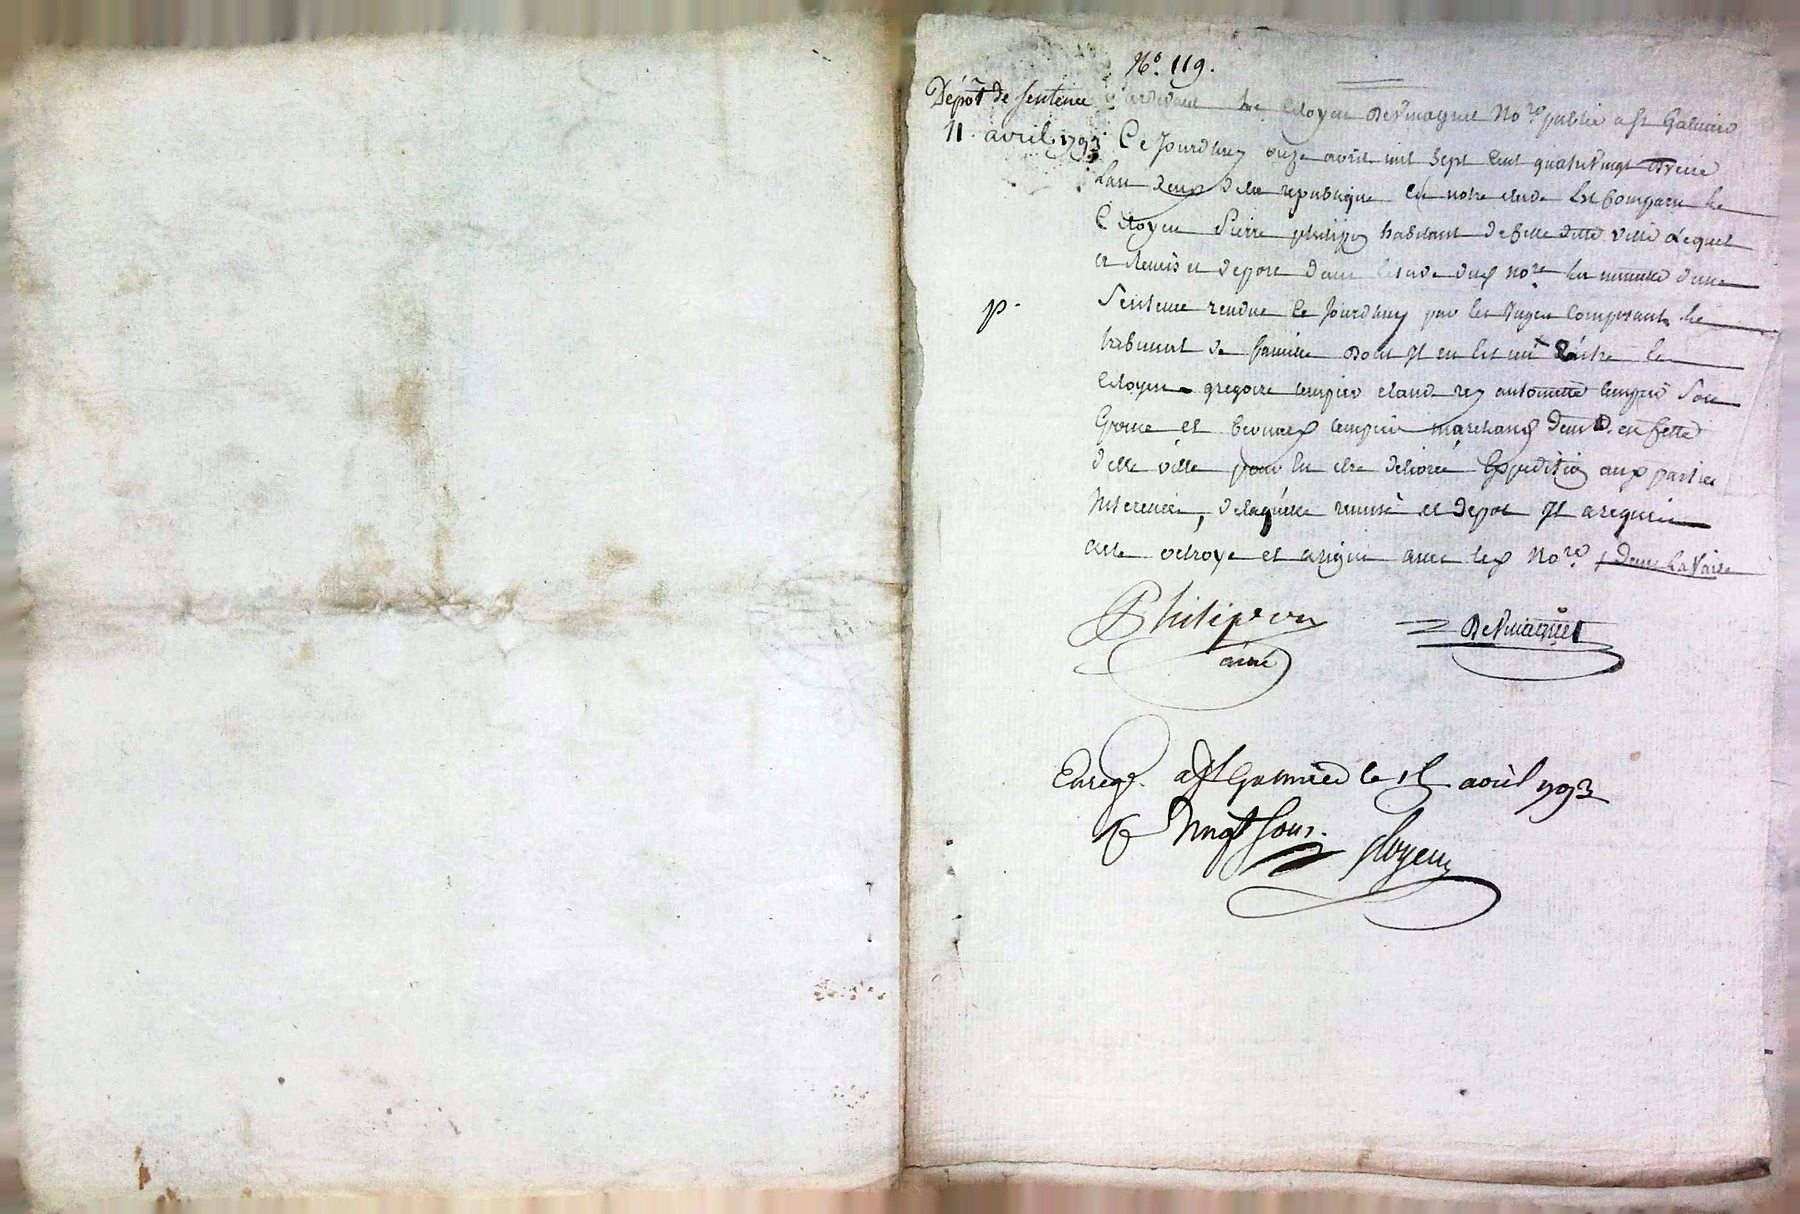 N.º 119.
Dépôt de sentence
11. avril 1793
pardevant le Citoyen Devmagnet No.re public a St Galmier
Ce Jourdhuy onze avril mil Sept Cent quatrevingt treize
Lan deux dela republique En notre etude Est Comparu le
Citoyen Pierre philippon habitant de Cette ditte ville Lequel
a Remis et depose dans letude du no.re la minutte dune
p.
Sentence rendue Ce Jourdhuy par les Juges Composant le
tribunal de famille dont Il en est un Entre le
Citoyen gregoire tempier claude rey antoinette tempier Son
et tempier marchand dem.t en Cette
ditte ville pour En etre delivré Expedition aux parties
Interessées, delaquelle remise et depot Il a requis
acte octroye et a signé avec led no.re
Philippon
ainé
Devmagnet
Enregr. a St Galmier le 15 avril 1793
R Vingt Sous.